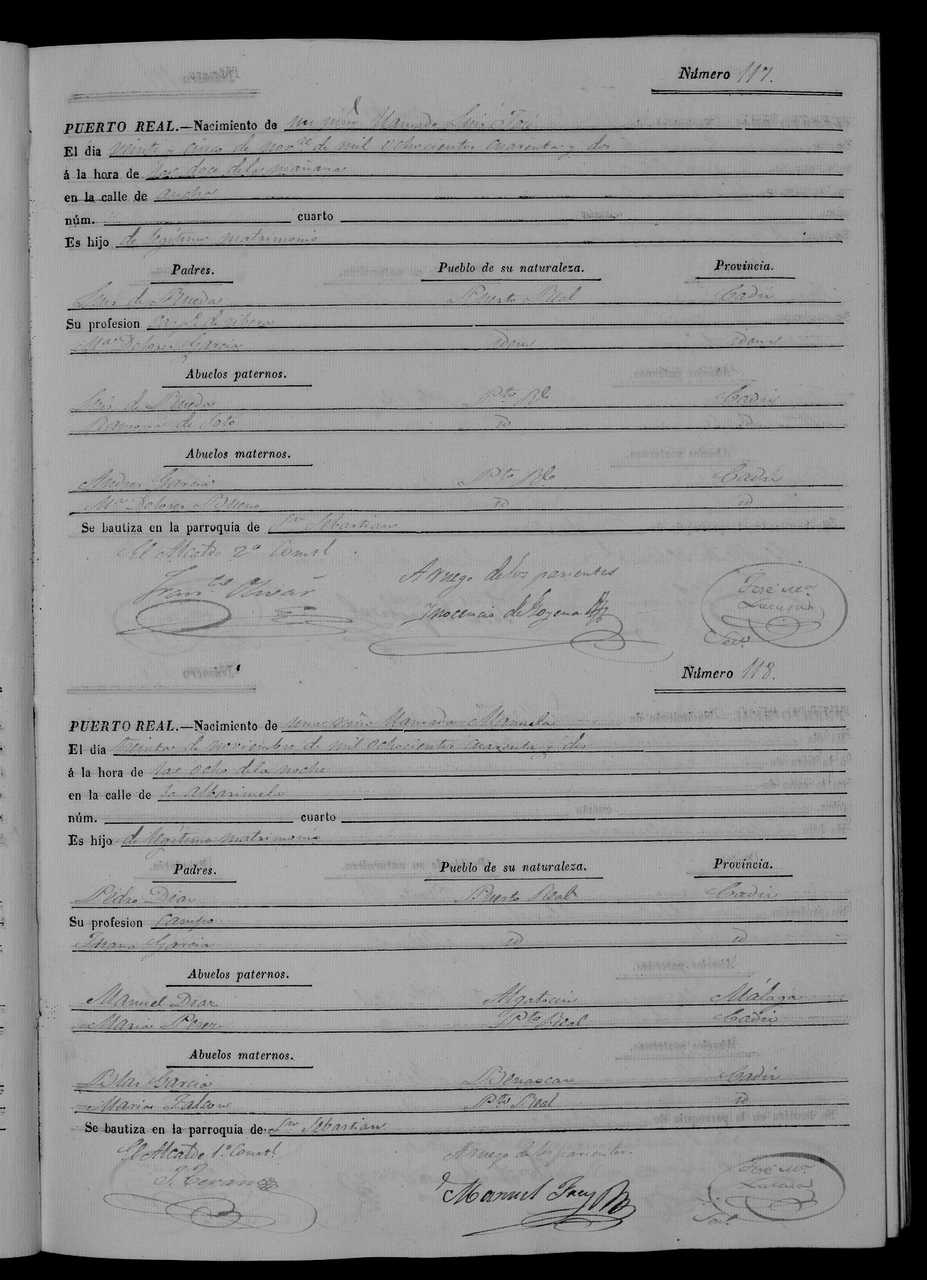 Número 117.
PUERTO REAL.—Nacimiento de un niño llamado Luis José
El dia veinte y cinco de novre de mil ochocientos cuarenta y dos
á la hora de las doce de la mañana
en la calle de ancha
núm. cuarto
Es hijo de legitimo matrimonio
Padres. Pueblo de su naturaleza. Provincia.
Luis de Rueda Puerto Real Cadiz
Su profesion de ribera
Ma Dolores Garcia idem idem
Abuelos paternos.
Luis de Rueda Pto Rl Cadiz
Ramona de Soto id id
Abuelos maternos.
Andres Garcia Pto Rl Cadiz
Ma Dolores Bueno id id
Se bautiza en la parroquia de Sn Sebastian
El Alcalde 2º Constl
A ruego de los parientes
Franco José Ma
Inocencio de Lozena
Srio
Número 118.
PUERTO REAL.—Nacimiento de una niña llamada Manuela
El dia treinta de noviembre de mil ochocientos cuarenta y dos
á la hora de las ocho de la noche
en la calle de la
núm. cuarto
Es hijo de legitimo matrimonio
Padres. Pueblo de su naturaleza. Provincia.
Pedro Diaz Puerto Real Cadiz
Su profesion campo
Juana Garcia id id
Abuelos paternos.
Manuel Diaz Algatocin Málaga
Maria Perez Pto Real Cadiz
Abuelos maternos.
Blas Garcia Cadiz
Maria Falcon Pto Real id
Se bautiza en la parroquia de Sn Sebastian
El Alcalde 1º Constl A ruego de los parientes José Ma
Manuel